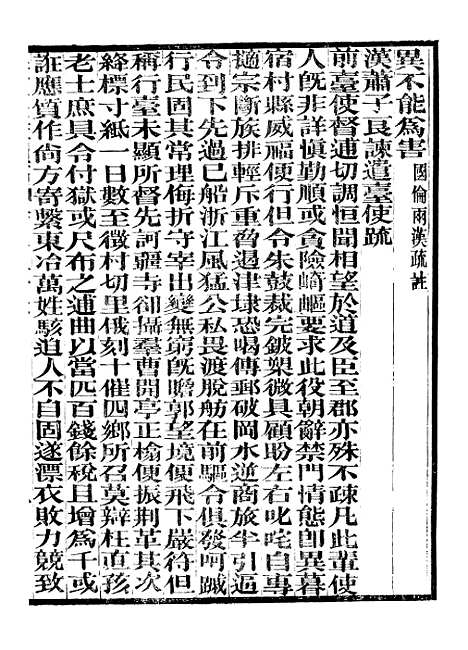 異不能爲害 國倫兩漢疏註
漢蕭子良諫遣臺使疏
前臺使督逋切調恒聞相望於道及臣至郡亦殊不疎凡此輩使
人旣非詳愼勤順或貪險崎嶇要求此役朝辭禁門情態卽異暮
宿村縣威福便行但令朱鼓裁完鈹槊微具顧盼左右叱咤自專
擿宗斷族排輕斥重脅遏津埭恐喝傳郵破岡水逆商旅半引逼
令到下先過已船浙江風猛公私畏渡脫舫在前驅令俱發呵蹴
行民固其常理侮折守宰出變無窮旣瞻郭望境便飛下嚴符但
稱行臺未顯所督先訶彊寺卻攝羣曹開亭正榆便振荆革其次
絳標寸紙一日數至徵村切里俄刻十催四鄉所召莫辨枉直孩
老士庶具令付獄或尺布之逋曲以當匹百錢餘稅且增爲千或
誑應質作尙方寄繫東冶萬姓駭迫人不自固遂漂衣敗力競致